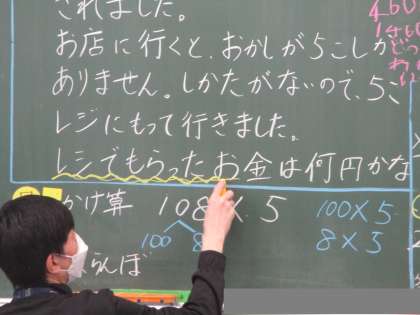 されました。
お店に行くと、おかしが5こしか
ありません。しかたがないので、5こ
レジにもって行きました。
レジでもらったお金は何円かな
かけ算 108×5
100×5
8×5
100 8
460